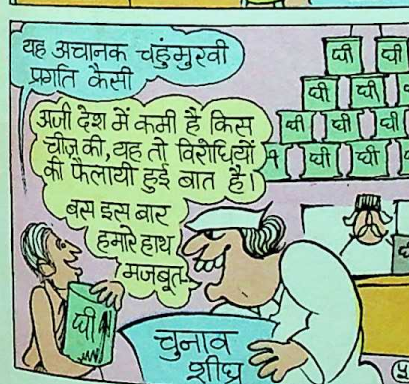 यह अचानक चहुंमुखी
प्रगति कैसी
अजी देश में कमी है किस
चीज़ की, यह तो विरोधियों
की फैलायी हुई बात है।
बस इस बार
हमारे हाथ
मजबूत...
घी घी
घी घी घी
घी घी घी घी
घी
चुनाव
शीघ्र